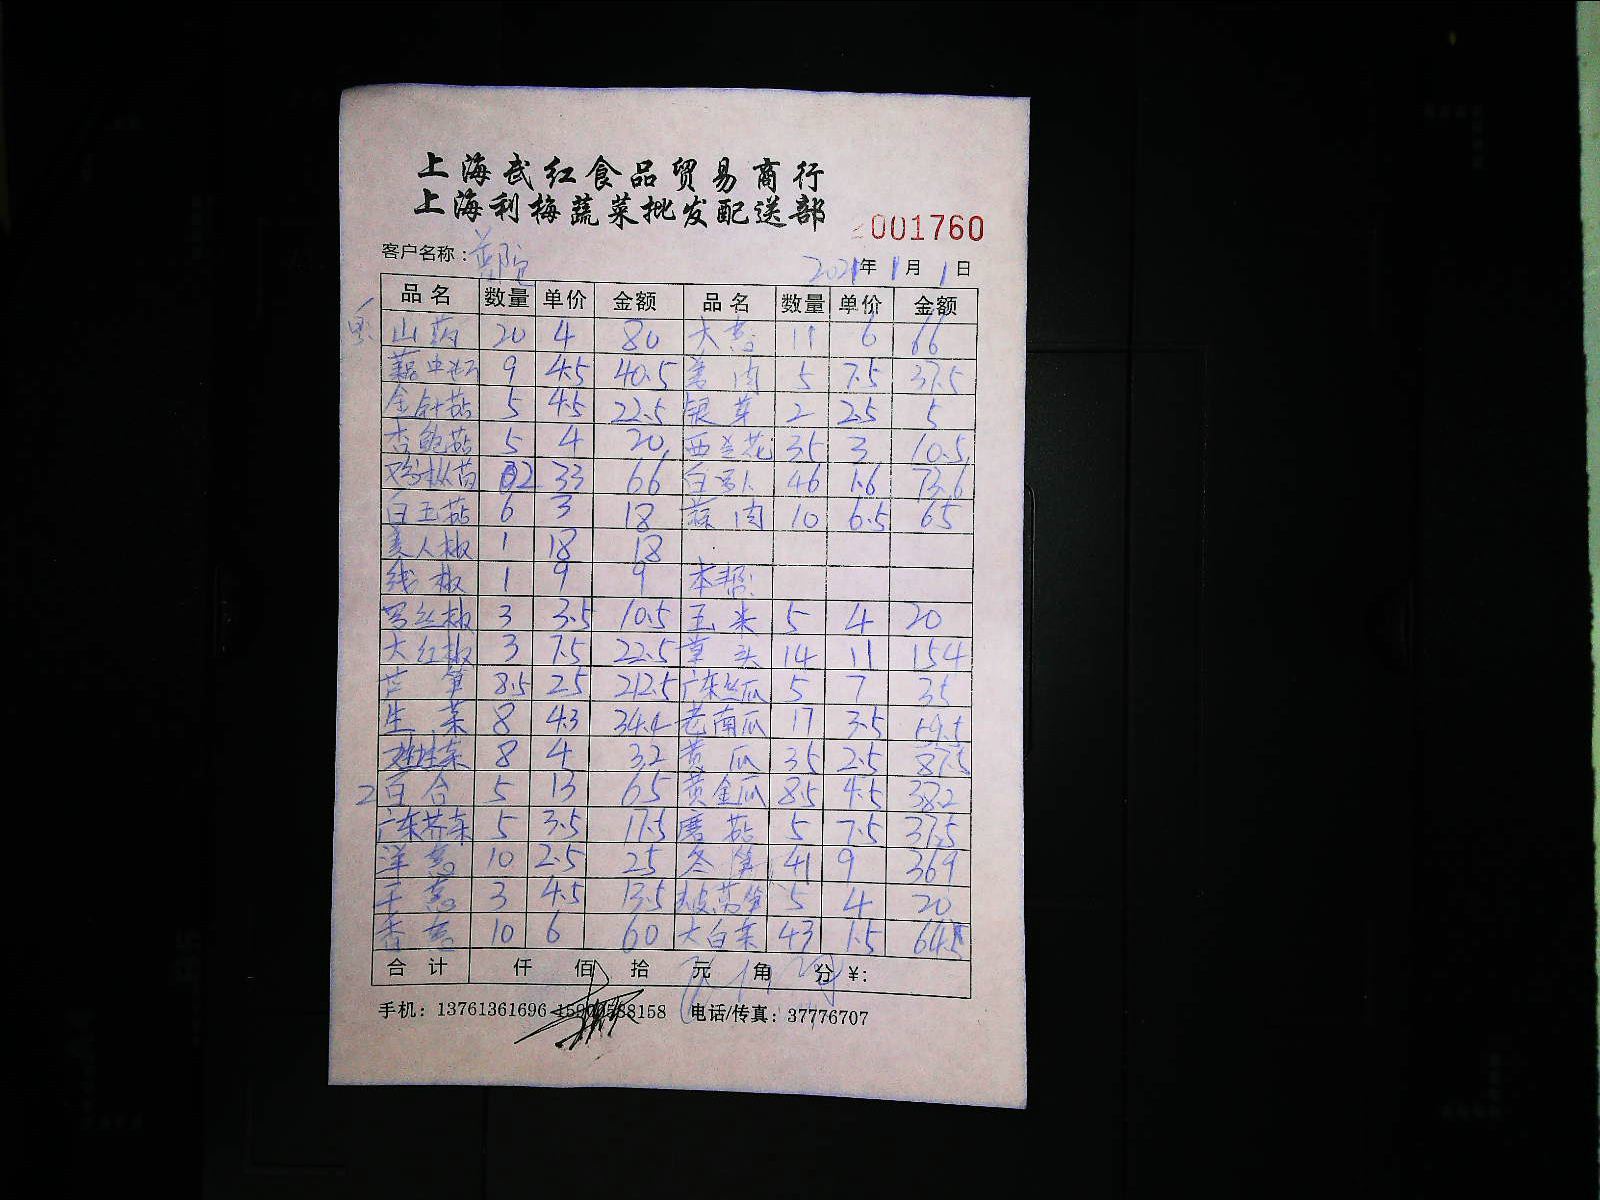 上海武红食品贸易商行
上海利梅蔬菜批发配送部
2001760
客户名称:
2021年1月1日
品名 数量 单价 金额 品名 数量 单价 金额
山药 20 4 80 大葱 11 6 66
藕中节 9 4.5 40.5 姜肉 5 7.5 37.5
金针菇 5 4.5 22.5 银芽 2 2.5 5
杏鲍菇 5 4 20 西兰花 3.5 3 10.5
鸡枞菌 2 33 66 白萝卜 46 1.6 73.6
白玉菇 6 3 18 蒜肉 10 6.5 65
美人椒 1 18 18
线椒 1 9 9 本帮:
罗丝椒 3 3.5 10.5 玉米 5 4 20
大红椒 3 7.5 22.5 草头 14 11 154
芦笋 8.5 25 212.5 广东丝瓜 5 7 35
生菜 8 4.3 34.4 老南瓜 17 3.5 59.5
娃娃菜 8 4 32 黄瓜 35 2.5 87.5
2 百合 5 13 65 黄金瓜 8.5 4.5 38.2
广东芥菜 5 3.5 17.5 磨菇 5 7.5 37.5
洋葱 10 2.5 25 冬笋 41 9 369
干葱 3 4.5 13.5 莴笋 5 4 20
香葱 10 6 60 大白菜 43 1.5 64.5
合计 仟 佰 拾 元 角 分 ¥:
手机: 13761361696 15900588158 电话/传真: 37776707